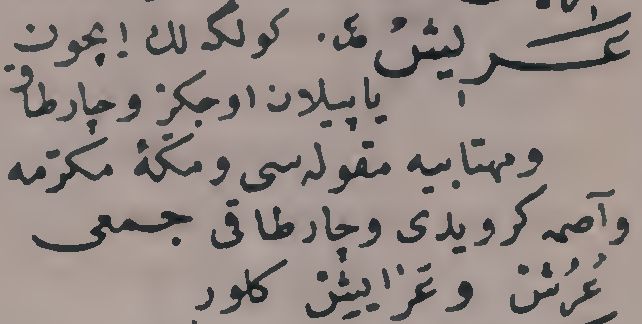 عَرِيشٌ عد. كولكه لك ايچون
ياپيلان اوجكز وچارطاق
ومهتابيه مقوله سی ومكۀ مكرّمه
وآصمه كرويدی وچارطاقی جمعی
عُرُشٌ وعَرَاييشٌ كلور